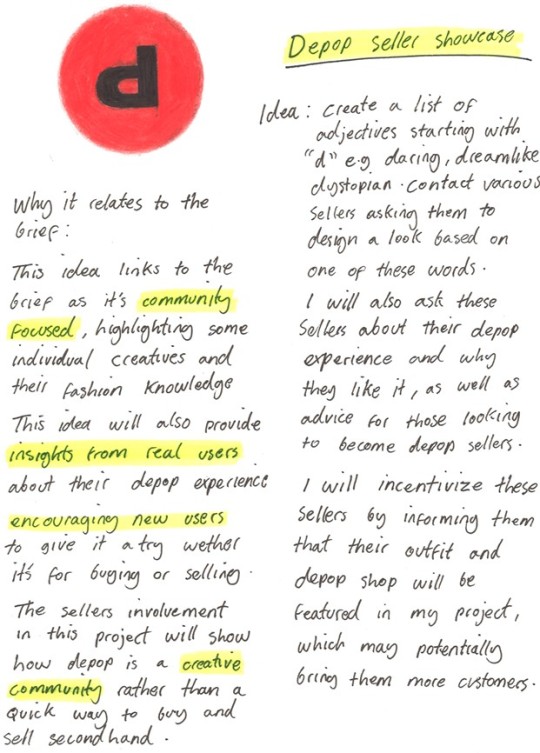 d
Why it relates to the
brief:
This idea links to the
brief as it's community
focused, highlighting some
individual creatives and
their fashion knowledge
This idea will also provide
insights from real users
about their depop experience
encouraging new users
to give it a try wether
it's for buying or selling.
The sellers involvement
in this project will show
how depop is a creative
community rather than a
quick way to buy and
sell secondhand.
Depop seller showcase
Idea: create a list of
adjectives starting with
"d" e.g daring, dreamlike
dystopian. contact various
sellers asking them to
design a look based on
one of these words.
I will also ask these
sellers about their depop
experience and why
they like it, as well as
advice for those looking
to become depop sellers.
I will incentivize these
sellers by informing them
that their outfit and
depop shop will be
featured in my project,
which may potentially
bring them more customers.